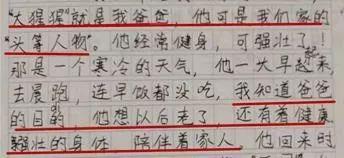 "大猩猩"就是我爸爸，他可是我们家的
"头等人物"。他经常健身，可强壮了！
那是一个寒冷的天气，他一大早起来，
去晨跑，连早饭都没吃，我知道爸爸
的目的，他想以后老了，还有着健康
强壮的身体，陪伴着家人。他回来时